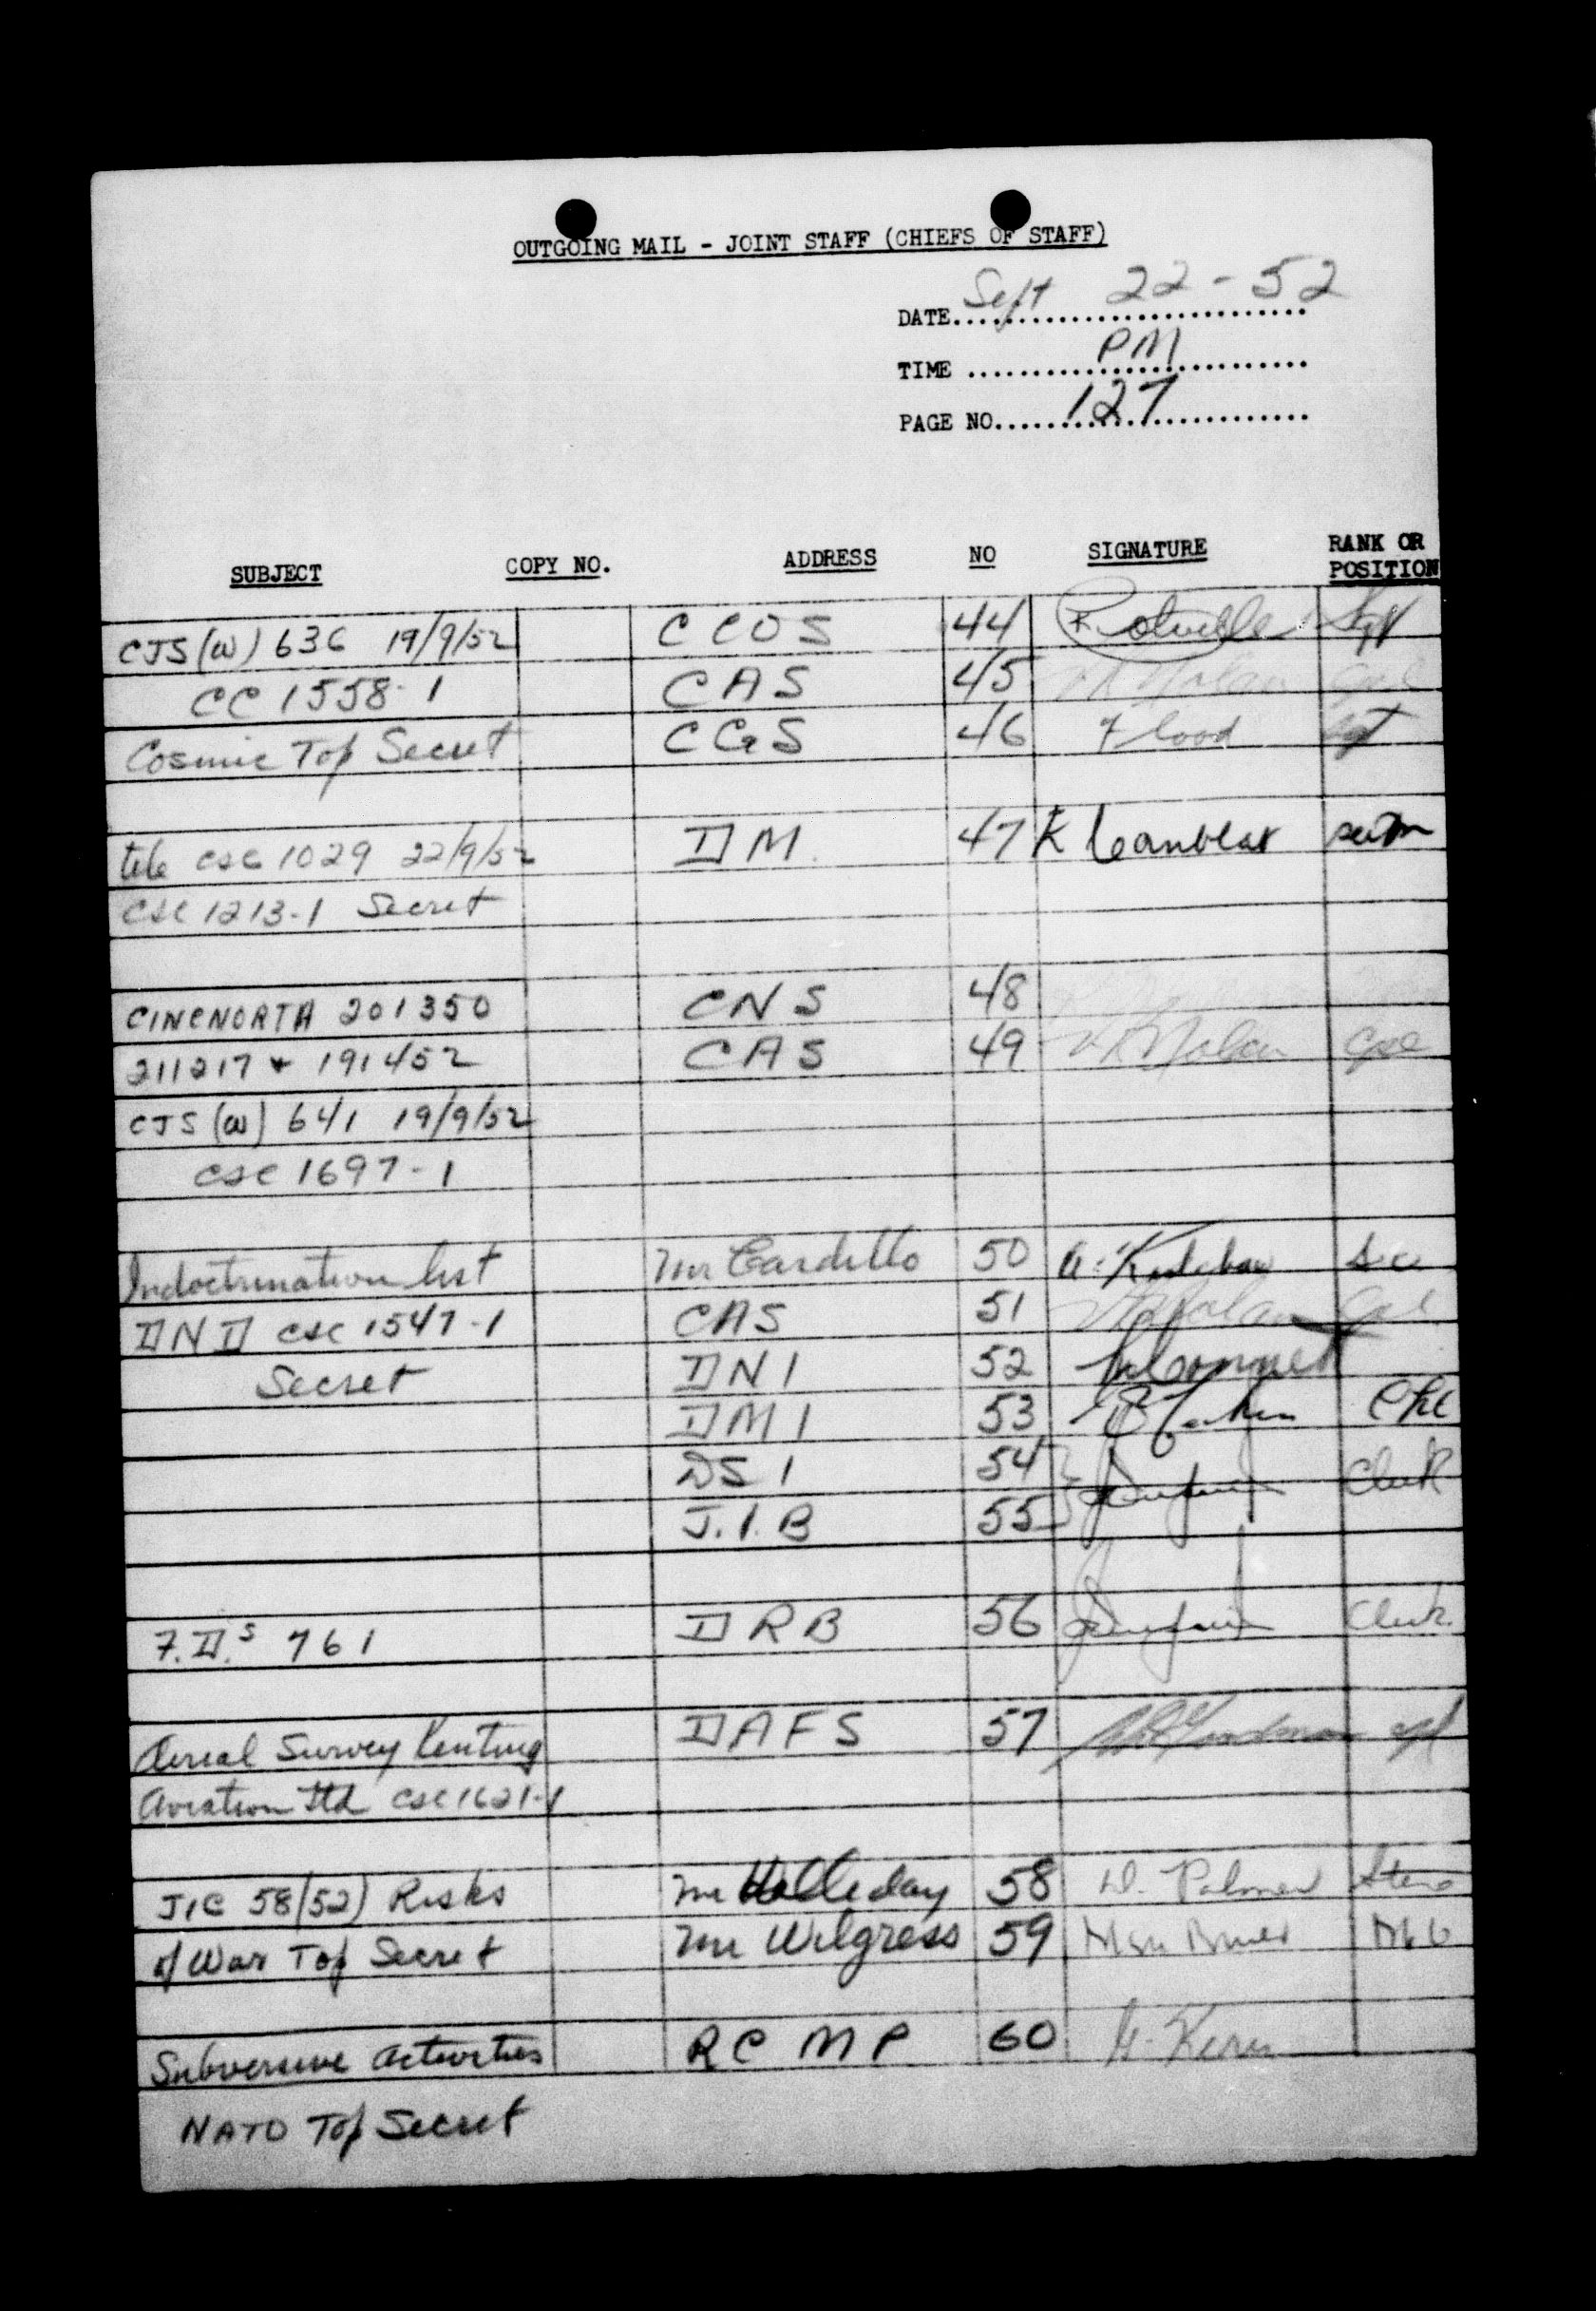 OUTGOING MAIL - JOINT STAFF (CHIEFS OF STAFF)
DATE Sept 22-52
TIME PM
PAGE NO. 127
SUBJECT COPY NO. ADDRESS NO SIGNATURE RANK OR POSITION
CJS(W) 636 19/9/52 CCOS 44 Sgt
CC 1558-1 CAS 45 Nolan Cpl
Cosmic Top Secret CGS 46 Flood Sgt
tele CSC 1029 22/9/52 DM 47 K
CSC 1213-1 Secret
CINCNORTH 201350 CNS 48
211217 + 191452 CAS 49 Nolan Cpl
CJS(W) 641 19/9/52
CSC 1697-1
Indoctrination list Mr Cardillo 50
DND CSC 1547-1 CAS 51 Nolan Cpl
Secret DNI 52
DMI 53
DSI 54 Clerk
J.I.B 55
F.D.s 761 DRB 56 Clerk
Aerial Survey Kenting DAFS 57 Cpl
Aviation Ltd CSC 1621-1
JIC 58(52) Risks Mr Halliday 58 D. Palmer Steno
of War Top Secret Mr Wilgress 59
Subversive Activities RCMP 60
NATO Top Secret